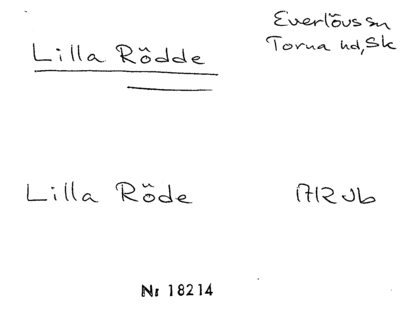 Everlövs sn
Torna hd, Sk
Lilla Rödde
Lilla Röde
1712 Jb
Nr 18214